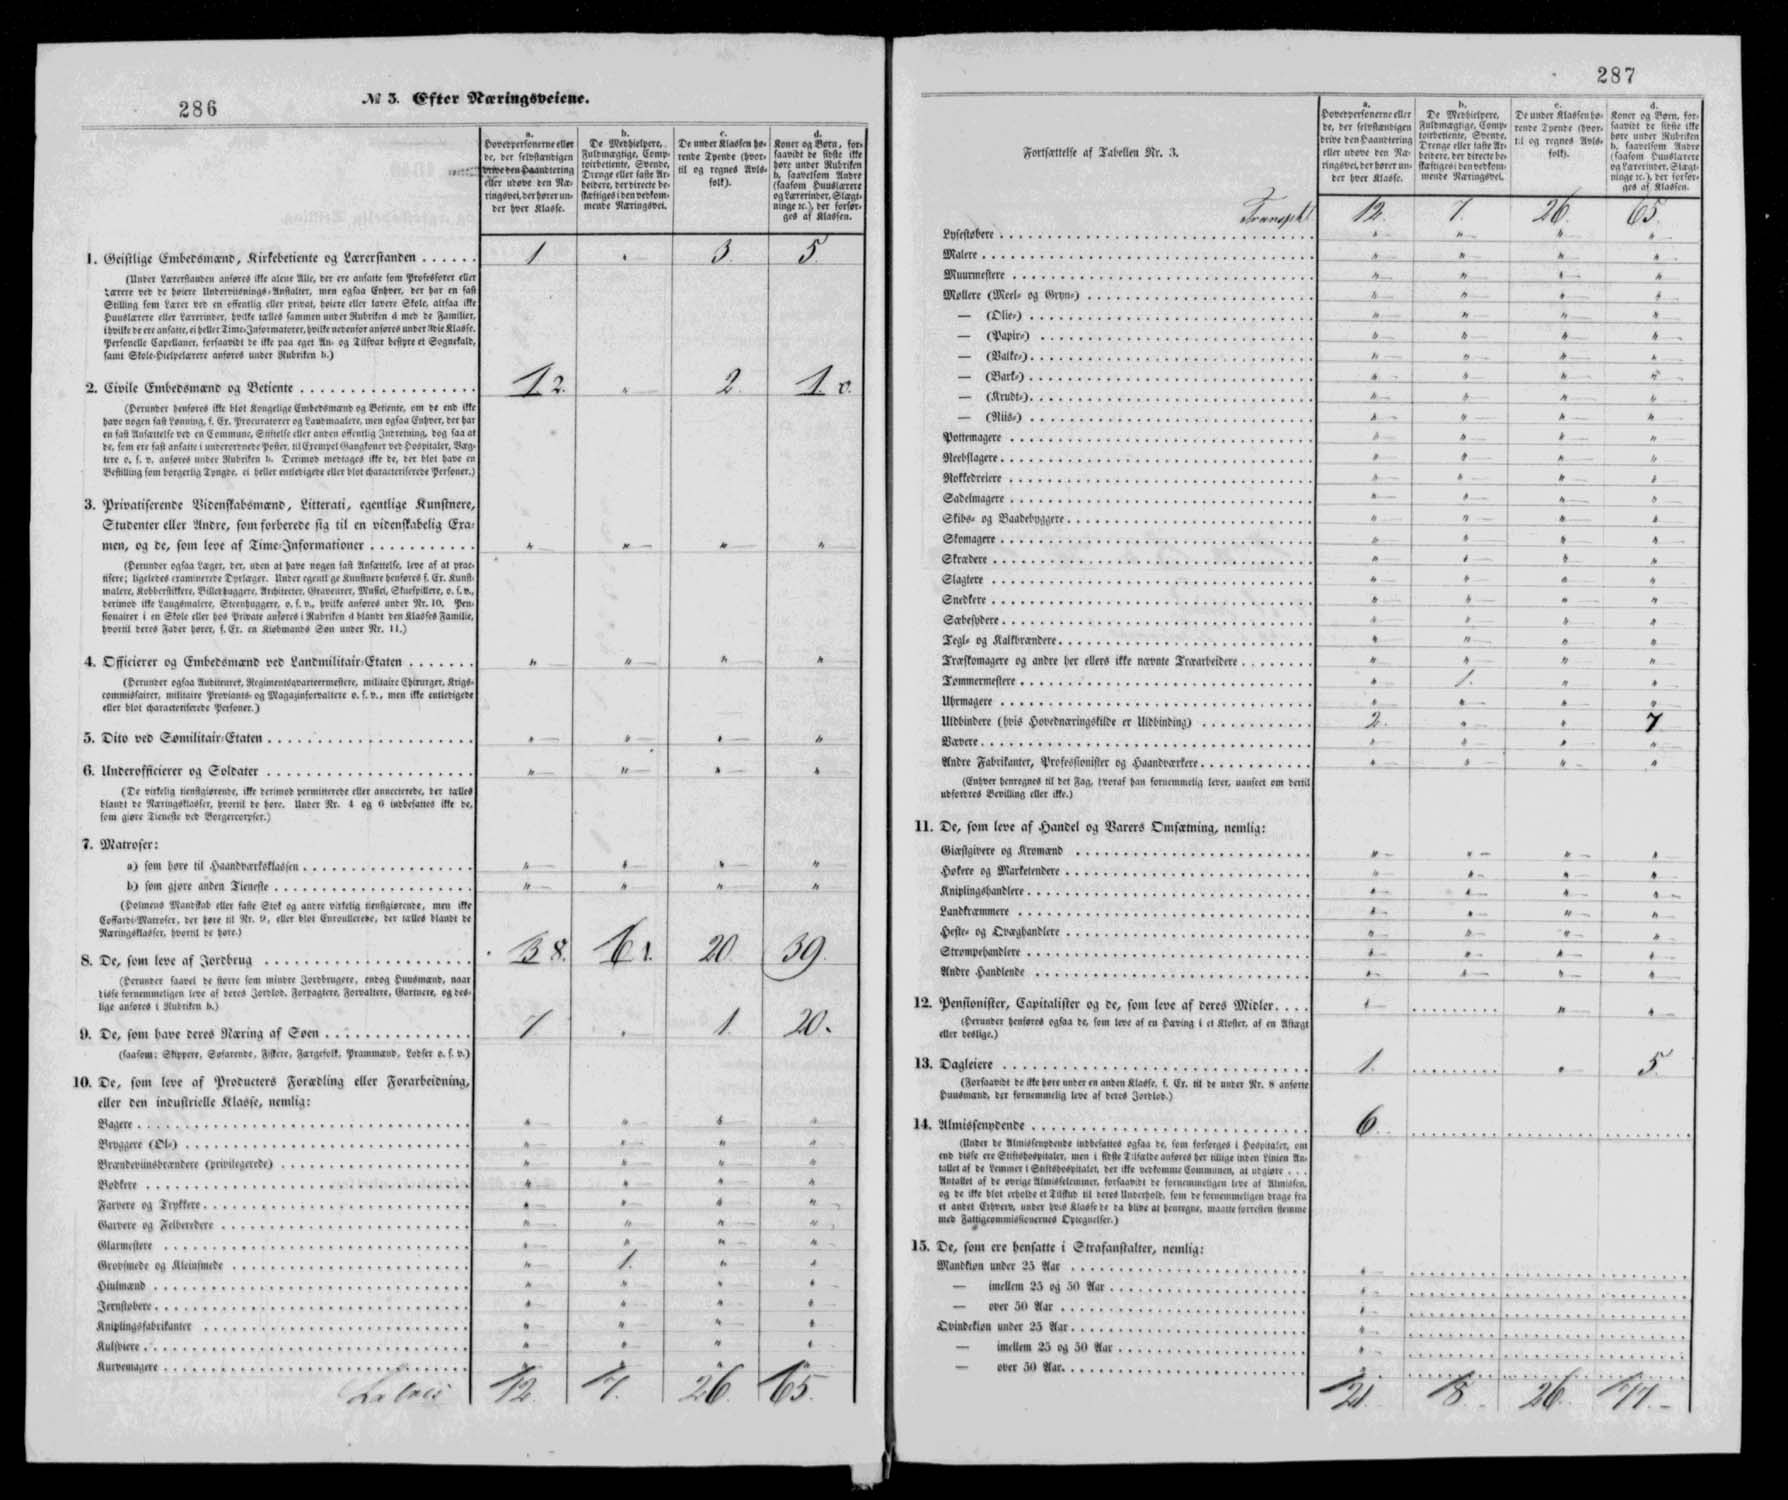 286
№ 3. Efter Næringsveiene.
a.
Hovedpersonerne eller
de, der selvstændigen
drive den Haandtering
eller udøve den Næ-
ringsvei, der hører un-
der hver Klasse.
b.
De Medhielpere,
Fuldmægtige, Comp-
toirbetiente, Svende,
Drenge eller faste Ar-
beidere, der directe be-
skæftiges i den vedkom-
mende Næringsvei.
c.
De under Klassen hø-
rende Tyende (hvor-
til og regnes Avls-
folk).
d.
Koner og Børn, for-
saavidt de sidste ikke
høre under Rubriken
b, saavelsom Andre
(saasom Huuslærere
og Lærerinder, Slægt-
ninge ꝛc.), der forsør-
ges af Klassen.
1. Geistlige Embedsmænd, Kirkebetiente og Lærerstanden ...... 1 " 3. 5.
(Under Lærerstanden anføres ikke alene Alle, der ere ansatte som Professorer eller
Lærere ved de høiere Underviisnings-Anstalter, men ogsaa Enhver, der har en fast
Stilling som Lærer ved en offentlig eller privat, høiere eller lavere Skole, altsaa ikke
Huuslærere eller Lærerinder, hvilke tælles sammen under Rubriken d med de Familier,
i hvilke de ere ansatte, ei heller Time-Informatorer, hvilke nedenfor anføres under 3die Klasse.
Personelle Capellaner, forsaavidt de ikke paa eget An- og Tilsvar bestyre et Sognekald,
samt Skole-Hielpelærere anføres under Rubriken b.)
2. Civile Embedsmænd og Betiente .................. 2. " 2.
(Herunder henføres ikke blot Kongelige Embedsmænd og Betiente, om de end ikke
have nogen fast Lønning, f. Ex. Procuratorer og Landmaalere, men ogsaa Enhver, der har
en fast Ansættelse ved en Commune, Stiftelse eller anden offentlig Indretning, dog saa at
de, som ere fast ansatte i underordnede Poster, til Exempel Gangkoner ved Hospitaler, Væg-
tere o. s. v. anføres under Rubriken b. Derimod medtages ikke de, der blot have en
Bestilling som borgerlig Tyngde, ei heller entledigede eller blot characteriserede Personer.)
3. Privatiserende Videnskabsmænd, Litterati, egentlige Kunstnere,
Studenter eller Andre, som forberede sig til en videnskabelig Exa-
men, og de, som leve af Time-Informationer ........... " " " "
(Herunder ogsaa Læger, der, uden at have nogen fast Ansættelse, leve af at prac-
tisere; ligeledes examinerede Dyrlæger. Under egentlige Kunstnere henføres f. Ex. Kunst-
malere, Kobberstikkere, Billedhuggere, Architecter, Graveurer, Musici, Skuespillere, o. s. v.,
derimod ikke Laugsmalere, Steenhuggere, o. s. v., hvilke anføres under Nr. 10. Pen-
sionairer i en Skole eller hos Private anføres i Rubriken d blandt den Klasses Familie,
hvortil deres Fader hører, f. Ex. en Kiøbmands Søn under Nr. 11.)
4. Officierer og Embedsmænd ved Landmilitair-Etaten ....... " " " "
(Herunder ogsaa Auditeurer, Regimentsqvarteermestere, militaire Chirurger, Krigs-
commissairer, militaire Proviants- og Magazinforvaltere o. s. v., men ikke entledigede
eller blot characteriserede Personer.)
5. Dito ved Sømilitair-Etaten ..................... " " " "
6. Underofficierer og Soldater ..................... " " " "
(De virkelig tienstgiørende, ikke derimod permitterede eller annecterede, der tælles
blandt de Næringsklasser, hvortil de høre. Under Nr. 4 og 6 indbefattes ikke de,
som giøre Tieneste ved Borgercorpser.)
7. Matroser:
a) som høre til Haandværksklassen ................. " " " "
b) som gjøre anden Tieneste .................... " " " "
(Holmens Mandskab eller faste Stok og andre virkelig tienstgiørende, men ikke
Coffardi-Matroser, der høre til Nr. 9, eller blot Enroullerede, der tælles blandt de
Næringsklasser, hvortil de høre.)
8. De, som leve af Jordbrug ..................... 8. 20. 39.
(Herunder saavel de større som mindre Jordbrugere, endog Huusmænd, naar
disse fornemmeligen leve af deres Jordlod. Forpagtere, Forvaltere, Gartnere, og des-
lige anføres i Rubriken b.)
9. De, som have deres Næring af Søen ............... 1 " 1. 20.
(saasom: Skippere, Søfarende, Fiskere, Færgefolk, Prammænd, Lodser o. s. v.)
10. De, som leve af Producters Forædling eller Forarbeidning,
eller den industrielle Klasse, nemlig:
Bagere .................................. " " " "
Bryggere (Øl-) ............................. " " " "
Brændeviinsbrændere (privilegerede) ................... " " " "
Bødkere ................................. " " " "
Farvere og Trykkere ........................... " " " "
Garvere og Felberedere ......................... " " " "
Glarmestere ............................... " " " "
Grovsmede og Kleinsmede ........................ " 1. " "
Hiulmænd ................................ " " " "
Jernstøbere ................................ " " " "
Kniplingsfabrikanter ........................... " " " "
Kulsviere ................................. " " " "
Kurvemagere ............................... " " " "
Latus 12. 7. 26. 65.
287
Fortsættelse af Tabellen Nr. 3.
a.
Hovedpersonerne eller
de, der selvstændigen
drive den Haandtering
eller udøve den Næ-
ringsvei, der hører un-
der hver Klasse.
b.
De Medhielpere,
Fuldmægtige, Comp-
toirbetiente, Svende,
Drenge eller faste Ar-
beidere, der directe be-
skæftiges i den vedkom-
mende Næringsvei.
c.
De under Klassen hø-
rende Tyende (hvor-
til og regnes Avls-
folk).
d.
Koner og Børn, for-
saavidt de sidste ikke
høre under Rubriken
b, saavelsom Andre
(saasom Huuslærere
og Lærerinder, Slægt-
ninge ꝛc.), der forsør-
ges af Klassen.
Transpt. 12. 7. 26. 65.
Lysestøbere ............................... " " " "
Malere .................................. " " " "
Muurmestere .............................. " " " "
Møllere (Meel- og Gryn-) ....................... " " " "
— (Olie-) ............................... " " " "
— (Papir-) .............................. " " " "
— (Valke-) .............................. " " " "
— (Bark-) ............................... " " " "
— (Krudt-) .............................. " " " "
— (Riis-) ............................... " " " "
Pottemagere ............................... " " " "
Reebslagere ................................ " " " "
Rokkedreiere ............................... " " " "
Sadelmagere ............................... " " " "
Skibs- og Baadebyggere ......................... " " " "
Skomagere ................................ " " " "
Skrædere ................................. " " " "
Slagtere .................................. " " " "
Snedkere ................................. " " " "
Sæbesydere ................................ " " " "
Tegl- og Kalkbrændere .......................... " " " "
Træskomagere og andre her ellers ikke nævnte Træarbeidere ....... " " " "
Tømmermestere ............................. " 1. " "
Uhrmagere ................................ " " " "
Uldbindere (hvis Hovednæringskilde er Uldbinding) ........... 2. " " 7
Vævere .................................. " " " "
Andre Fabrikanter, Professionister og Haandværkere ........... " " " "
(Enhver henregnes til det Fag, hvoraf han fornemmelig lever, uanseet om dertil
udfordres Bevilling eller ikke.)
11. De, som leve af Handel og Varers Omsætning, nemlig:
Giæstgivere og Kromænd ........................ " " " "
Høkere og Marketendere ......................... " " " "
Kniplingshandlere ............................ " " " "
Landkræmmere .............................. " " " "
Heste- og Qvæghandlere ......................... " " " "
Strømpehandlere ............................. " " " "
Andre Handlende ............................. " " " "
12. Pensionister, Capitalister og de, som leve af deres Midler .... " ......... " "
(Herunder henføres ogsaa de, som leve af en Hæving i et Kloster, af en Aftægt
eller deslige.)
13. Dagleiere .............................. 1. ......... " 5.
(Forsaavidt de ikke høre under en anden Klasse, f. Ex. til de under Nr. 8 anførte
Huusmænd, der fornemmelig leve af deres Jordlod.)
14. Almissenydende .......................... 6. ...........................
(Under de Almissenydende indbefattes ogsaa de, som forsørges i Hospitaler, om
end disse ere Stiftshospitaler, men i sidste Tilfælde anføres her tillige inden Linien An-
tallet af de Lemmer i Stiftshospitalet, der ikke vedkomme Communen, at udgiøre ...
Antallet af de øvrige Almisselemmer, forsaavidt de fornemmeligen leve af Almissen,
og de ikke blot erholde et Tilskud til deres Underhold, som de fornemmeligen drage fra
et andet Erhverv, under hvis Klasse de da blive at henregne, maatte forresten stemme
med Fattigcommissionernes Optegnelser.)
15. De, som ere hensatte i Strafanstalter, nemlig:
Mandkiøn under 25 Aar ........................ " ...........................
— imellem 25 og 50 Aar ....................... " ...........................
— over 50 Aar ............................. " ...........................
Qvindekiøn under 25 Aar ........................ " ...........................
— imellem 25 og 50 Aar ....................... " ...........................
— over 50 Aar ............................. " ...........................
21. 8. 26. 77.